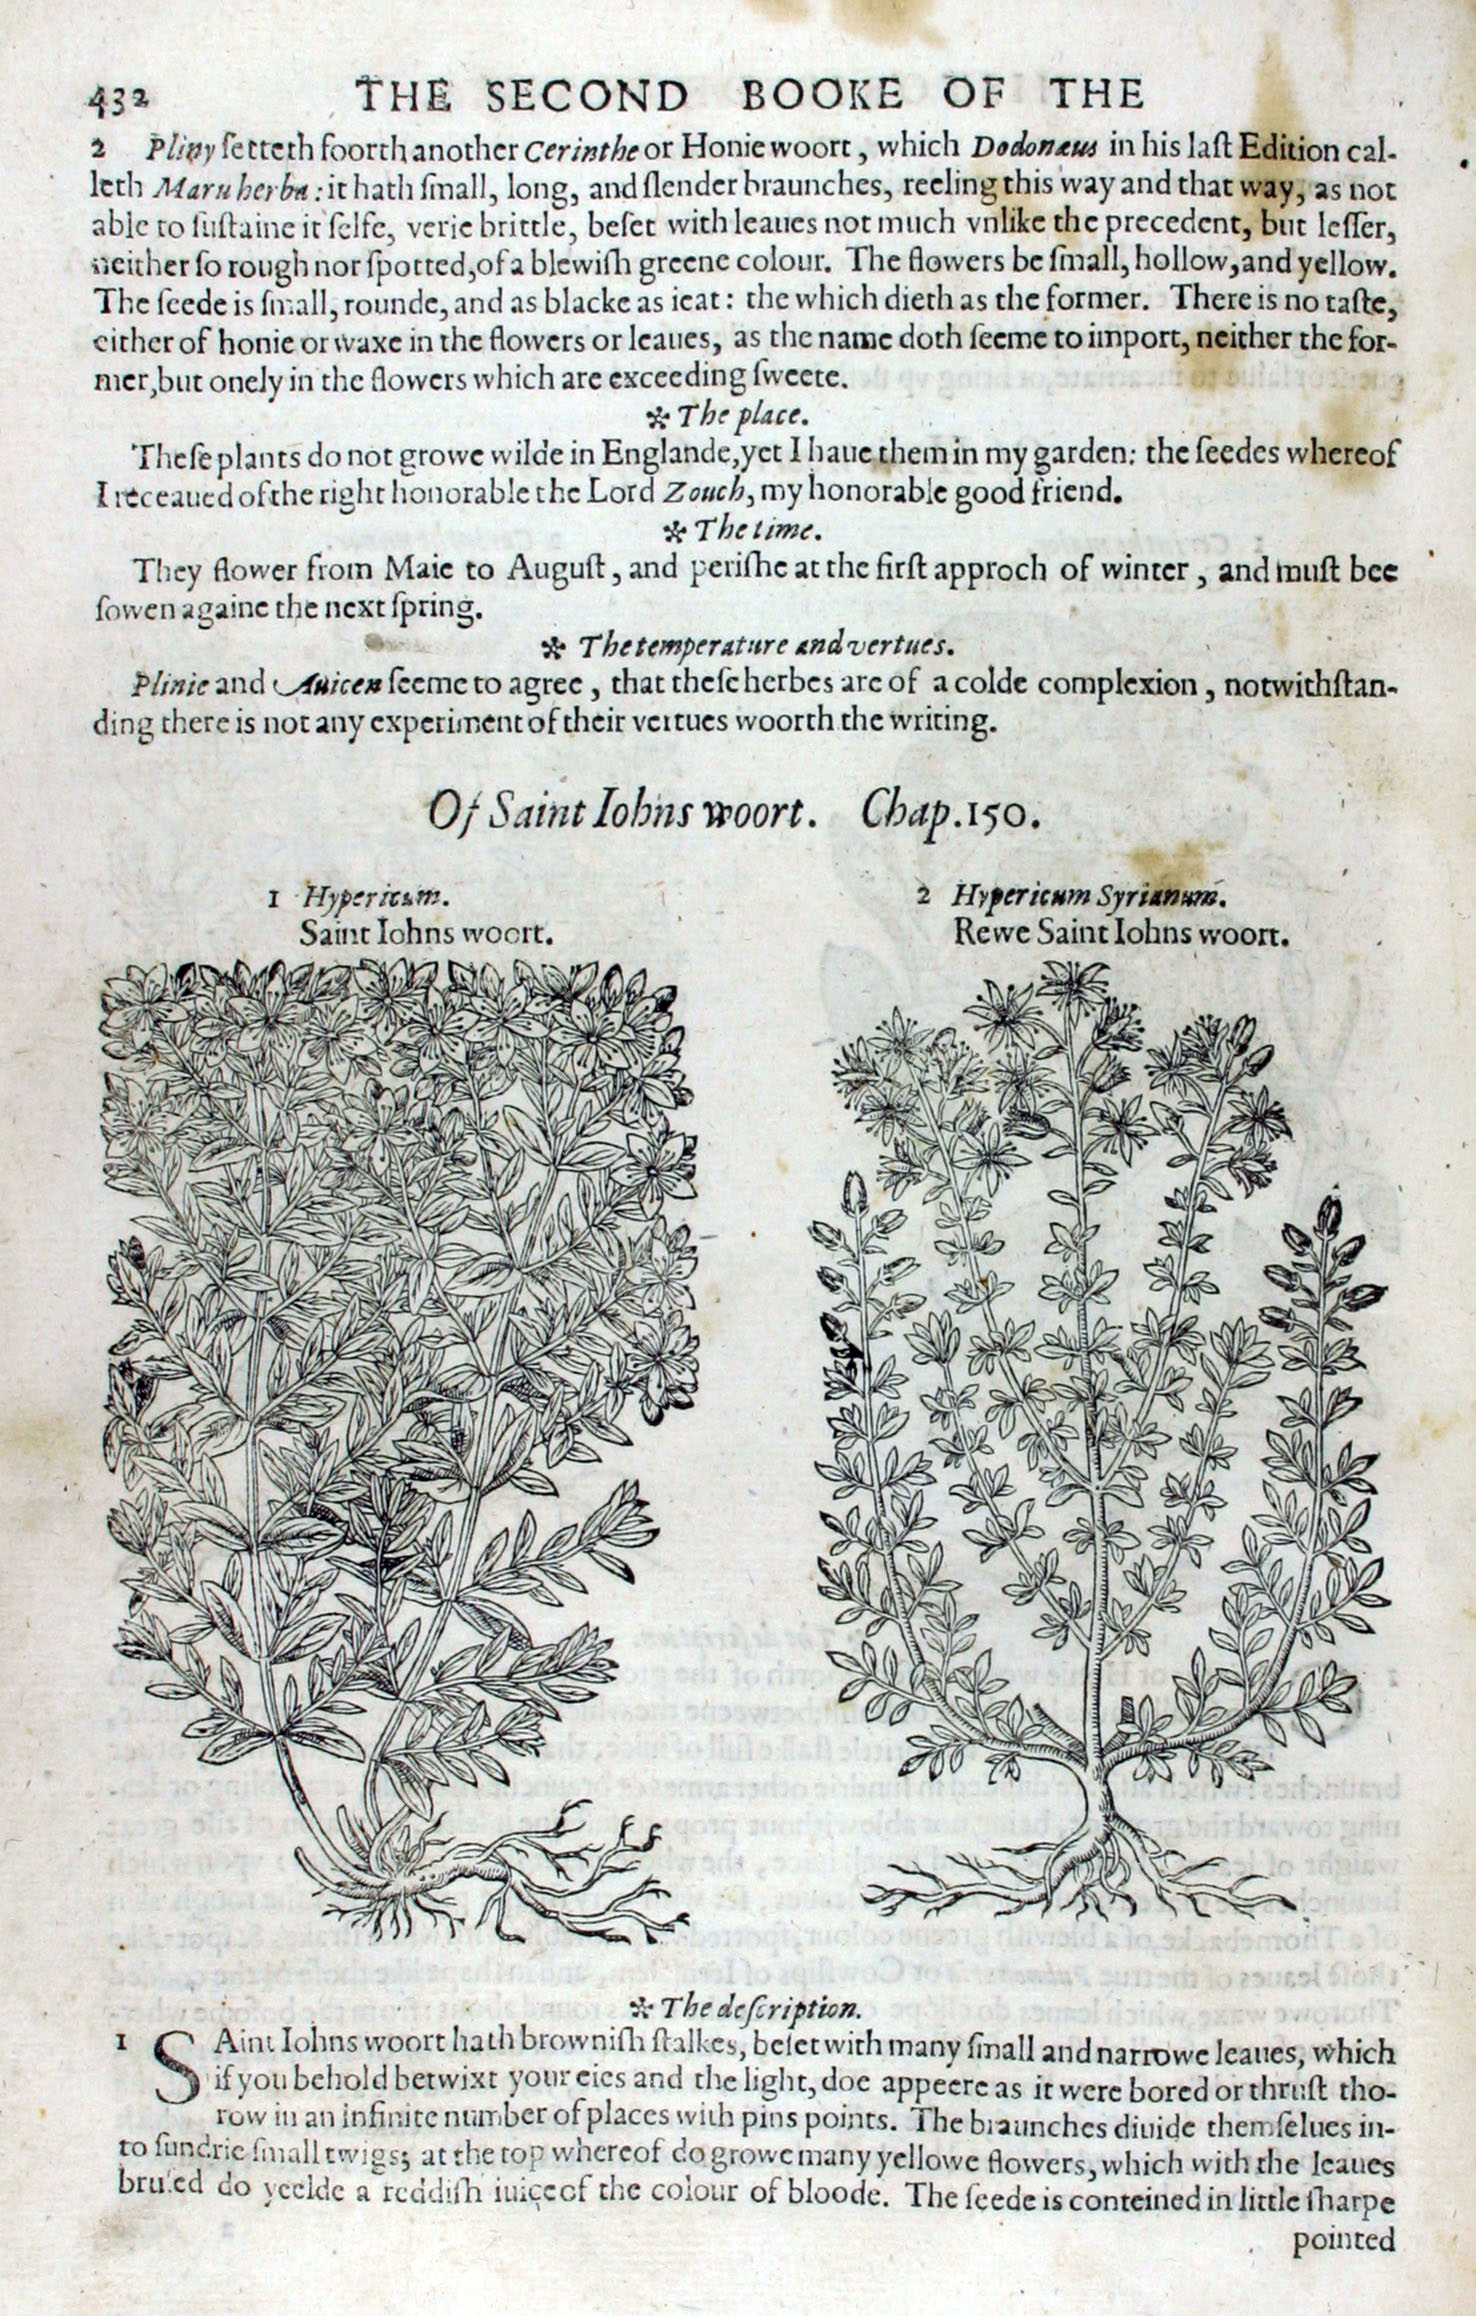 432 THE SECOND BOOKE OF THE
2 Pliny ſetteth foorth another Cerinthe or Honie woort, which Dodonæus in his laſt Edition cal-
leth Maru herba: it hath ſmall, long, and ſlender braunches, reeling this way and that way, as not
able to ſuſtaine it ſelfe, verie brittle, beſet with leaues not much vnlike the precedent, but leſſer,
neither ſo rough nor ſpotted, of a blewiſh greene colour. The flowers be ſmall, hollow, and yellow.
The ſeede is ſmall, rounde, and as blacke as ieat: the which dieth as the former. There is no taſte,
either of honie or waxe in the flowers or leaues, as the name doth ſeeme to import, neither the for-
mer, but onely in the flowers which are exceeding ſweete.
✻ The place.
Theſe plants do not growe wilde in Englande, yet I haue them in my garden: the ſeedes whereof
I receaued of the right honorable the Lord Zouch, my honorable good friend.
✻ The time.
They flower from Maie to Auguſt, and periſhe at the firſt approch of winter, and muſt bee
ſowen againe the next ſpring.
✻ The temperature and vertues.
Plinie and Auicen ſeeme to agree, that theſe herbes are of a colde complexion, notwithſtan-
ding there is not any experiment of their vertues woorth the writing.
Of Saint Iohns woort. Chap.150.
1 Hypericum.
Saint Iohns woort.
2 Hypericum Syrianum.
Rewe Saint Iohns woort.
✻ The deſcription.
1 SAint Iohns woort hath browniſh ſtalkes, beſet with many ſmall and narrowe leaues, which
if you behold betwixt your eies and the light, doe appeere as it were bored or thruſt tho-
row in an infinite number of places with pins points. The braunches diuide themſelues in-
to ſundrie ſmall twigs; at the top whereof do growe many yellowe flowers, which with the leaues
bruſed do yeelde a reddiſh iuice of the colour of bloode. The ſeede is conteined in little ſharpe
pointed